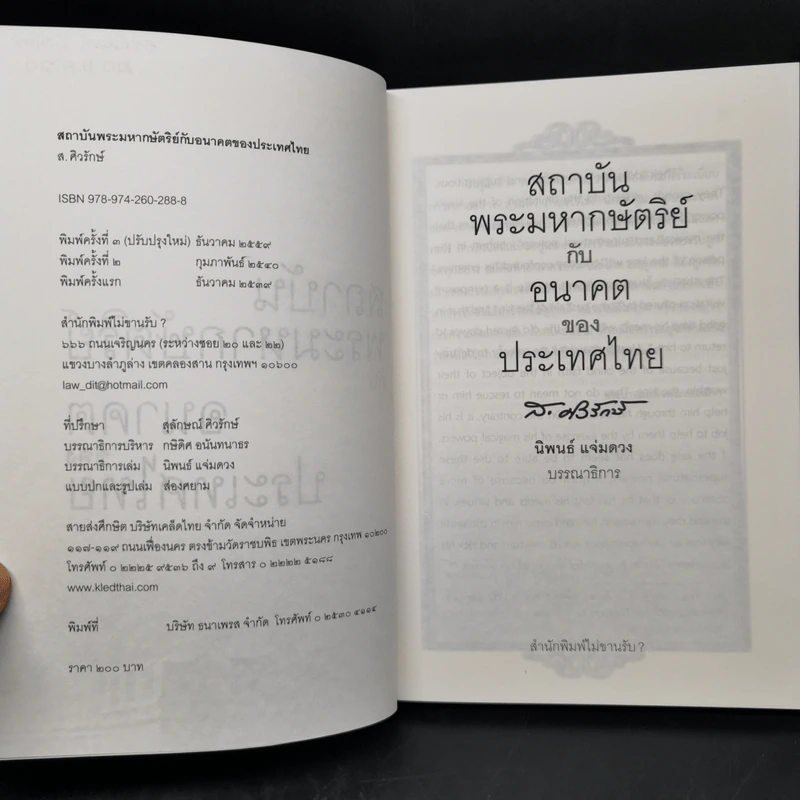 สถาบันพระมหากษัตริย์กับอนาคตของประเทศไทย
ส. ศิวรักษ์
ISBN 978-974-260-288-8
พิมพ์ครั้งที่ ๓ (ปรับปรุงใหม่) ธันวาคม ๒๕๕๙
พิมพ์ครั้งที่ ๒ กุมภาพันธ์ ๒๕๔๐
พิมพ์ครั้งแรก ธันวาคม ๒๕๓๙
สำนักพิมพ์ไม่ขานรับ ?
๖๖๖ ถนนเจริญนคร (ระหว่างซอย ๒๐ และ ๒๒)
แขวงบางลำภูล่าง เขตคลองสาน กรุงเทพฯ ๑๐๖๐๐
law_dit@hotmail.com
ที่ปรึกษา สุลักษณ์ ศิวรักษ์
บรรณาธิการบริหาร กษิดิศ อนันทนาธร
บรรณาธิการเล่ม นิพนธ์ แจ่มดวง
แบบปกและรูปเล่ม ส่องศยาม
สายส่งศึกษิต บริษัทเคล็ดไทย จำกัด จัดจำหน่าย
๑๑๗-๑๑๙ ถนนเฟื่องนคร ตรงข้ามวัดราชบพิธ เขตพระนคร กรุงเทพ ๑๐๒๐๐
โทรศัพท์ ๐ ๒๒๒๕ ๙๕๓๖ ถึง ๙ โทรสาร ๐ ๒๒๒๒ ๕๑๘๘
www.kledthai.com
พิมพ์ที่ บริษัท ธนาเพรส จำกัด โทรศัพท์ ๐ ๒๕๓๐ ๔๑๑๔
ราคา ๒๐๐ บาท
สถาบัน
พระมหากษัตริย์
กับ
อนาคต
ของ
ประเทศไทย
ส. ศิวรักษ์
นิพนธ์ แจ่มดวง
บรรณาธิการ
สำนักพิมพ์ไม่ขานรับ ?